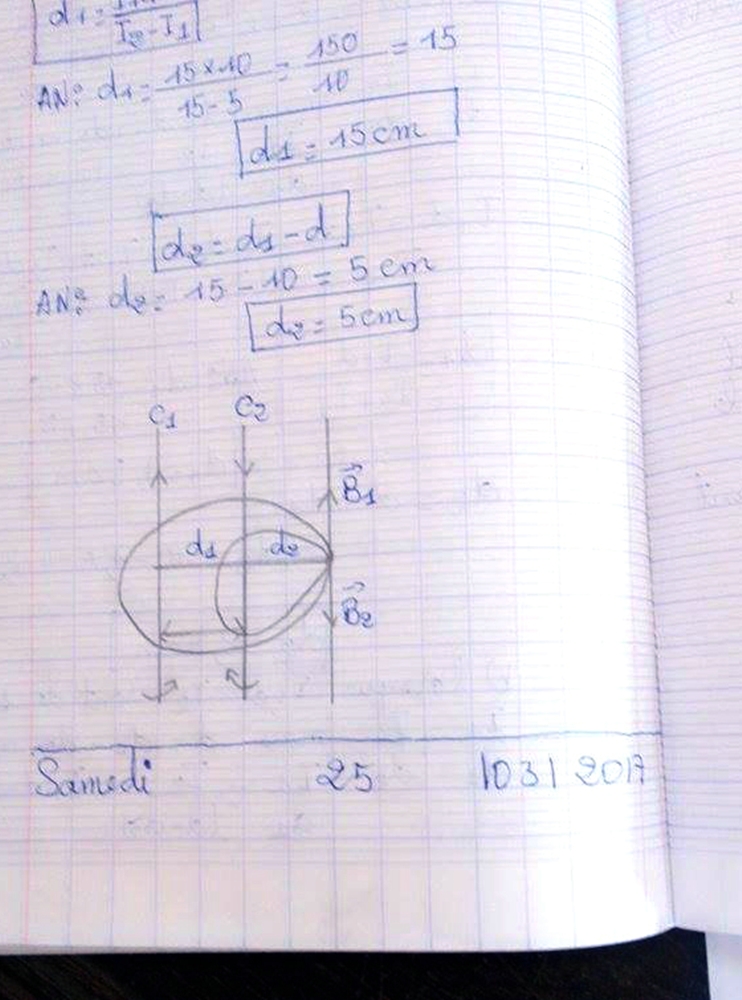 d1 =
I2 - I1
AN: d1 = 15 × 10 / 15 - 5 = 150 / 10 = 15
d1 = 15 cm
d2 = d1 - d
AN: d2 = 15 - 10 = 5 cm
d2 = 5 cm
C1 C2
B⃗1
d1 d2
B⃗2
Samedi 25 /03/2017